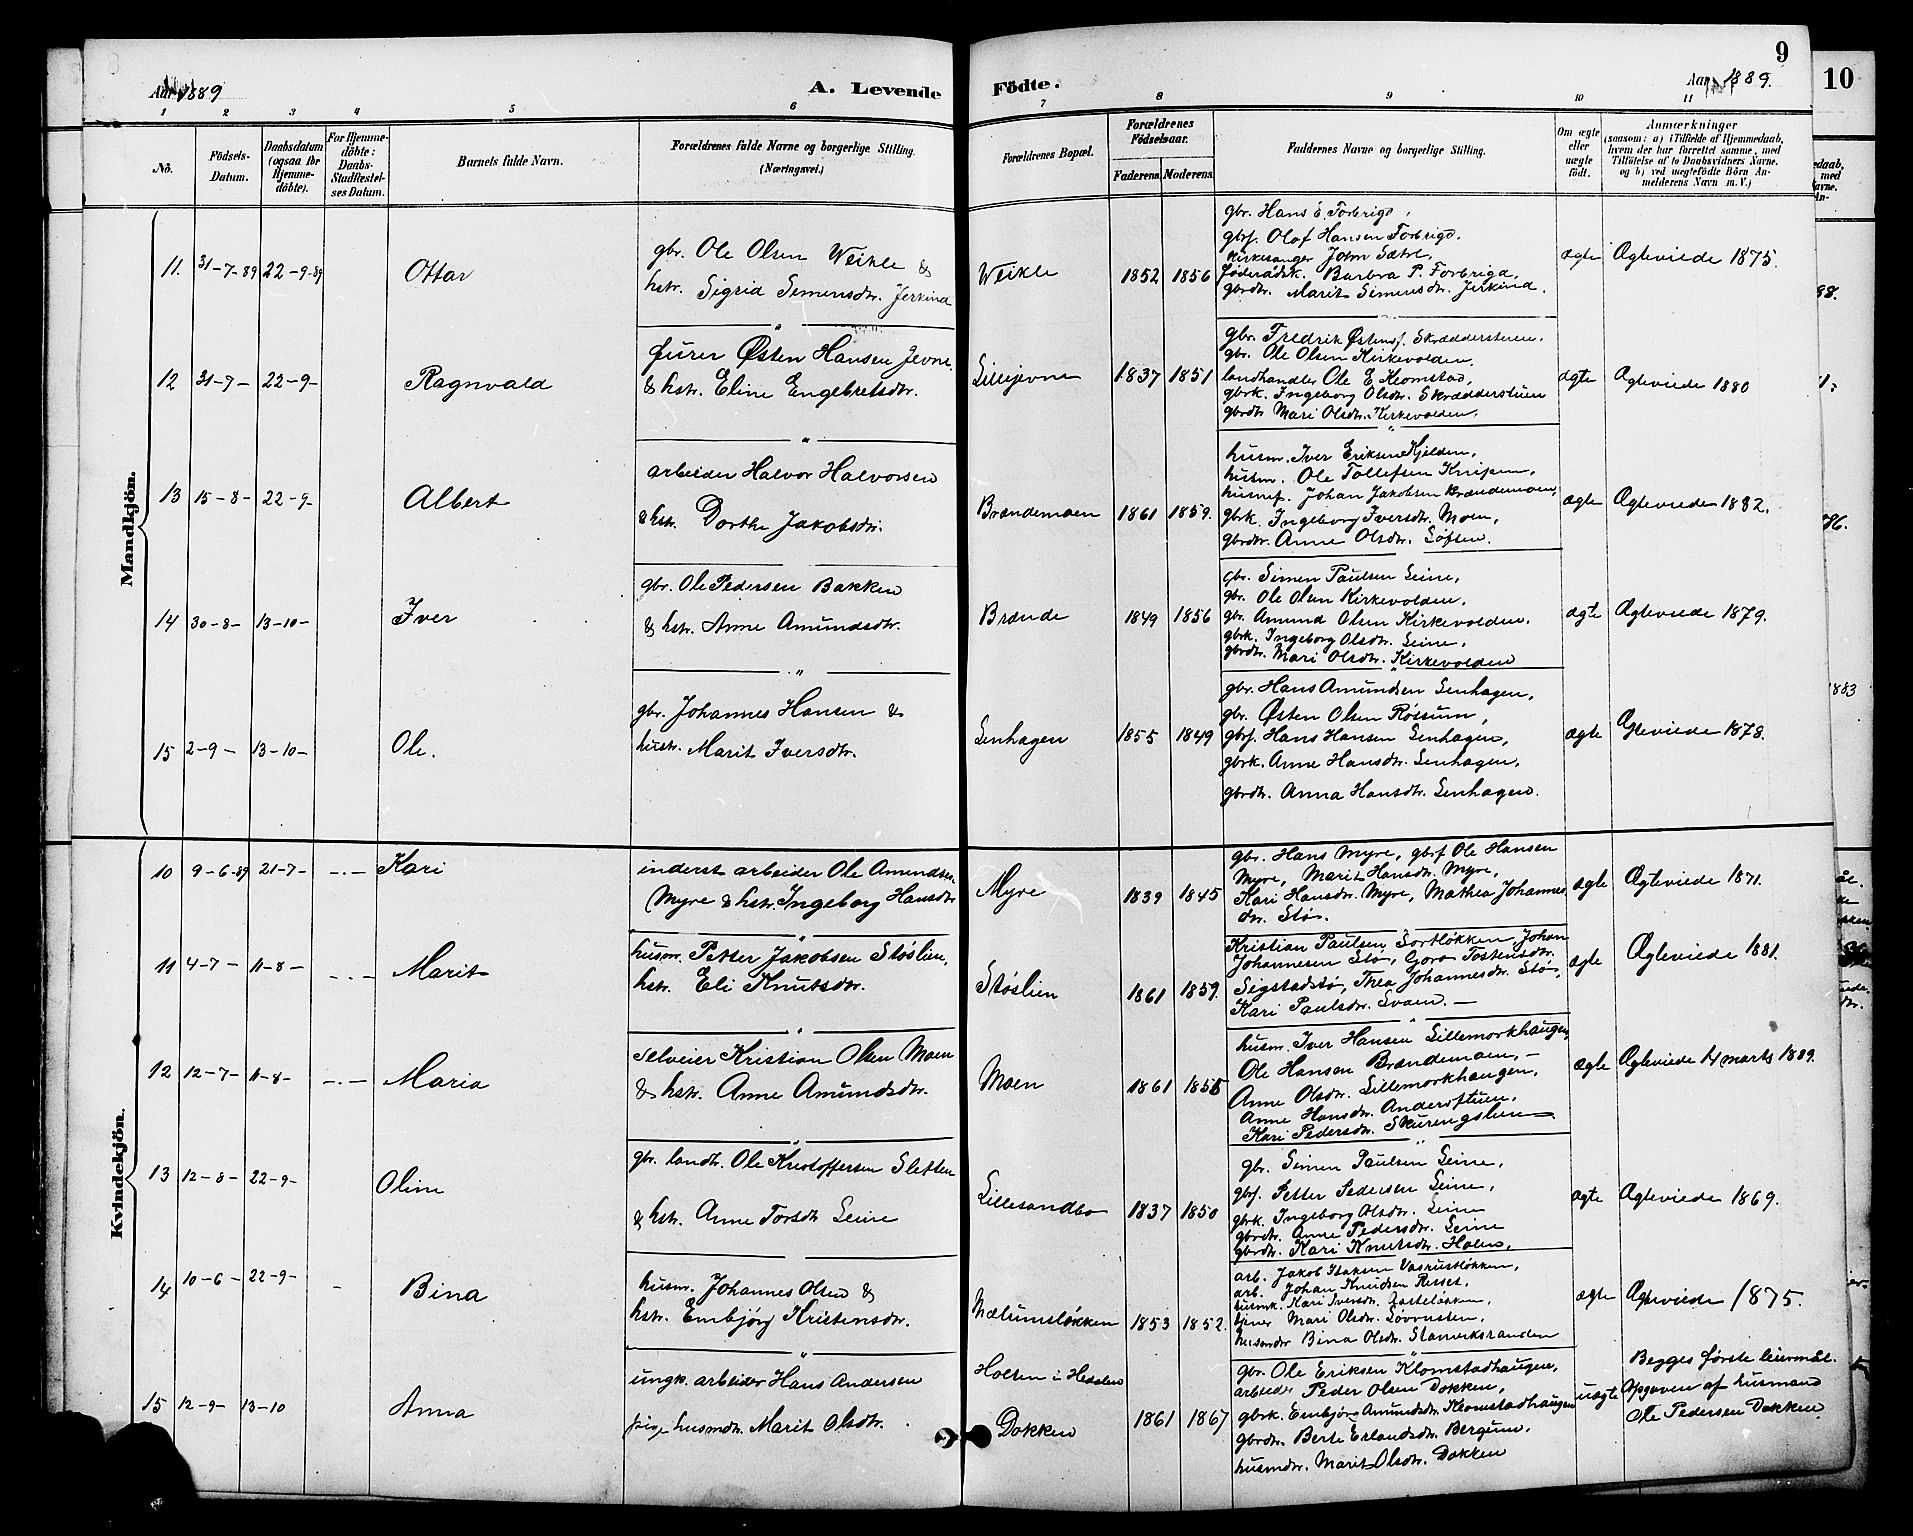 9
10
Aar 1889
A. Levende
Födte.
Aar 1889.
1 2 3 4 5 6 7 8 9 10 11
No.
Födsels-
Datum.
Daabsdatum
(ogsaa for
Hjemme-
döbte).
For Hjemme-
döbte:
Daabs-
Stadfæstel-
ses Datum.
Barnets fulde Navn.
Forældrenes fulde Navne og borgerlige Stilling.
(Næringsvei.)
Forældrenes Bopæl.
Forældrenes
Födselsaar.
Faderens. Moderens.
Faddernes Navne og borgerlige Stilling.
Om ægte
eller
uægte
født.
Anmærkninger
(saasom: a) i Tilfælde af Hjemmedaab,
hvem der har forrettet samme, med
Tilföielse af to Daabsvidners Navne.
og b) ved uægtefödte Börn An-
melderens Navn m. V.)
Mandkjön.
11. 31-7-89 22-9-89 Ottar
gbr. Ole Olsen Weikle &
hstr. Sigrid Simensdtr. Jerkind
Weikle 1852 1856
gbr. Hans E. Forbrigd,
gbrs. Olof Hansen Forbrigd.
Kirkesanger John Sætre,
føderådsk. Barbra P. Forbrigd,
gbrdtr. Marit Simensdtr. Jerkind.
ægte Ægteviede 1875.
12 31-7- 22-9- Ragnvald
furer Østen Hansen Jevne
& hstr. Eline Engebretsdtr.
Lillejevne 1837 1851
gbr. Fredrik Østensf. Skrædderstuen,
gbr. Ole Olsen Kirkevolden.
landhandler Ole E. Klomstad,
gbrk. Ingeborg Olsdtr. Skrædderstuen
gbrdtr Mari Olsdtr. Kirkevolden.
ægte Ægteviede 1880
13 15-8- 22-9- Albert
arbeider Halvor Halvorsen
& hstr. Dorthe Jakobsdtr.
Brændemoen 1861 1859.
husm. Iver Eriksen Kjelden,
husm. Ole Tollefsen Knipen,
husmf. Johan Jakobsen Brændemoen,
gbrk. Ingeborg Iversdtr. Moen,
gbrdtr. Anne Olsdtr. Løften.
ægte Ægteviede 1882.
14 30-8- 13-10- Iver
gbr. Ole Pedersen Bakken
& hstr. Anne Amundsdtr.
Brænde 1849 1856
gbr. Simen Paulsen Leine,
gbr. Ole Olsen Kirkevolden.
gbr. Amund Olsen Kirkevolden.
gbrk. Ingeborg Olsdtr. Leine,
gbrdtr. Mari Olsdtr. Kirkevolden
ægte Ægteviede 1879.
15 2-9- 13-10- Ole.
gbr. Johannes Hansen &
hustr. Marit Iversdtr.
Lenhagen 1855 1849
gbr. Hans Amundsen Lenhagen,
gbr. Østen Olsen Røssum,
gbrs. Hans Hansen Lenhagen,
gbrk. Anne Hansdtr. Lenhagen,
gbrdtr. Anna Hansdtr. Lenhagen.
ægte Ægteviede 1878.
Kvindekjön.
10 9-6-89 21-7- -.- Kari
inderst arbeider Ole Amundsen
Myre & hstr. Ingeborg Hansdtr
Myre 1839 1845
gbr. Hans Myre, gbrf Ole Hansen
Myre, Marit Hansdtr. Myre,
Kari Hansdtr. Myre, Mathea Johannes
dtr. Stø.
ægte Ægteviede 1871.
11 4-7- 11-8- -.- Marit
husm. Petter Jakobsen Støslien,
hstr. Eli Knutsdtr.
Støslien 1861 1859.
Kristian Paulsen Sortløkken, Johan
Johannesen Stø, Goro Tostensdtr.
Sigstadstø, Thea Johannesdtr. Stø,
Kari Paulsdtr. Svaen. -
ægte Ægteviede 1881.
12 12-7- 11-8- -.- Maria
selveier Kristian Olsen Moen
& hstr. Anne Amundsdtr.
Moen 1861
husm. Iver Hansen Lillemorkhaugen,
Ole Hansen Brændemoen, -
Anne Olsdtr. Lillemorkhaugen,
Anne Hansdtr. Andersstuen,
Kari Pedersdtr. Skurengslien
ægte Ægteviede 14 marts 1889.
13 12-8- 22-9- Oline
gbr. landh. Ole Kristoffersen Sletten
& hstr. Anne Torsdtr Leine
Lillesandbo 1837 1850
gbr. Simen Paulsen Leine,
gbrf. Petter Pedersen Leine,
gbrk. Ingeborg Olsdtr. Leine
gbrdtr. Anne Pedersdtr. Leine
gbrdtr. Kari Knutsdtr. Holen,
ægte Ægteviede 1869.
14 10-6- 22-9- - Bina
husm. Johannes Olsen &
hstr. Embjørg Kristensdtr.
Mælumsløkken 1853 1852.
arb. Jakob Isaksen Vaskudløkken,
arb. Johan Knudsen Risset,
husmk. Kari Iversdtr.
Mari Olsdtr.
husmdtr Bina Olsdtr.
ægte Ægteviede 1875.
15 12-9- 13-10 Anna
ungk. arbeider Hans Andersen
pige husmdtr. Marit Olsdtr.
Holen i Hedalen
Dokken 1861 1867
gbr. Ole Eriksen Klomstadhaugen,
arbeider Peder Olsen Dokken,
gbrk. Embjørg Amundsdtr. Klomstadhaugen
gbrdtr. Berte Erlandsdtr. Bergum,
husmdtr. Marit Olsdtr. Dokken
uægte
Begges første leiermål.
Opgaven af husmand
Ole Pedersen Dokken.